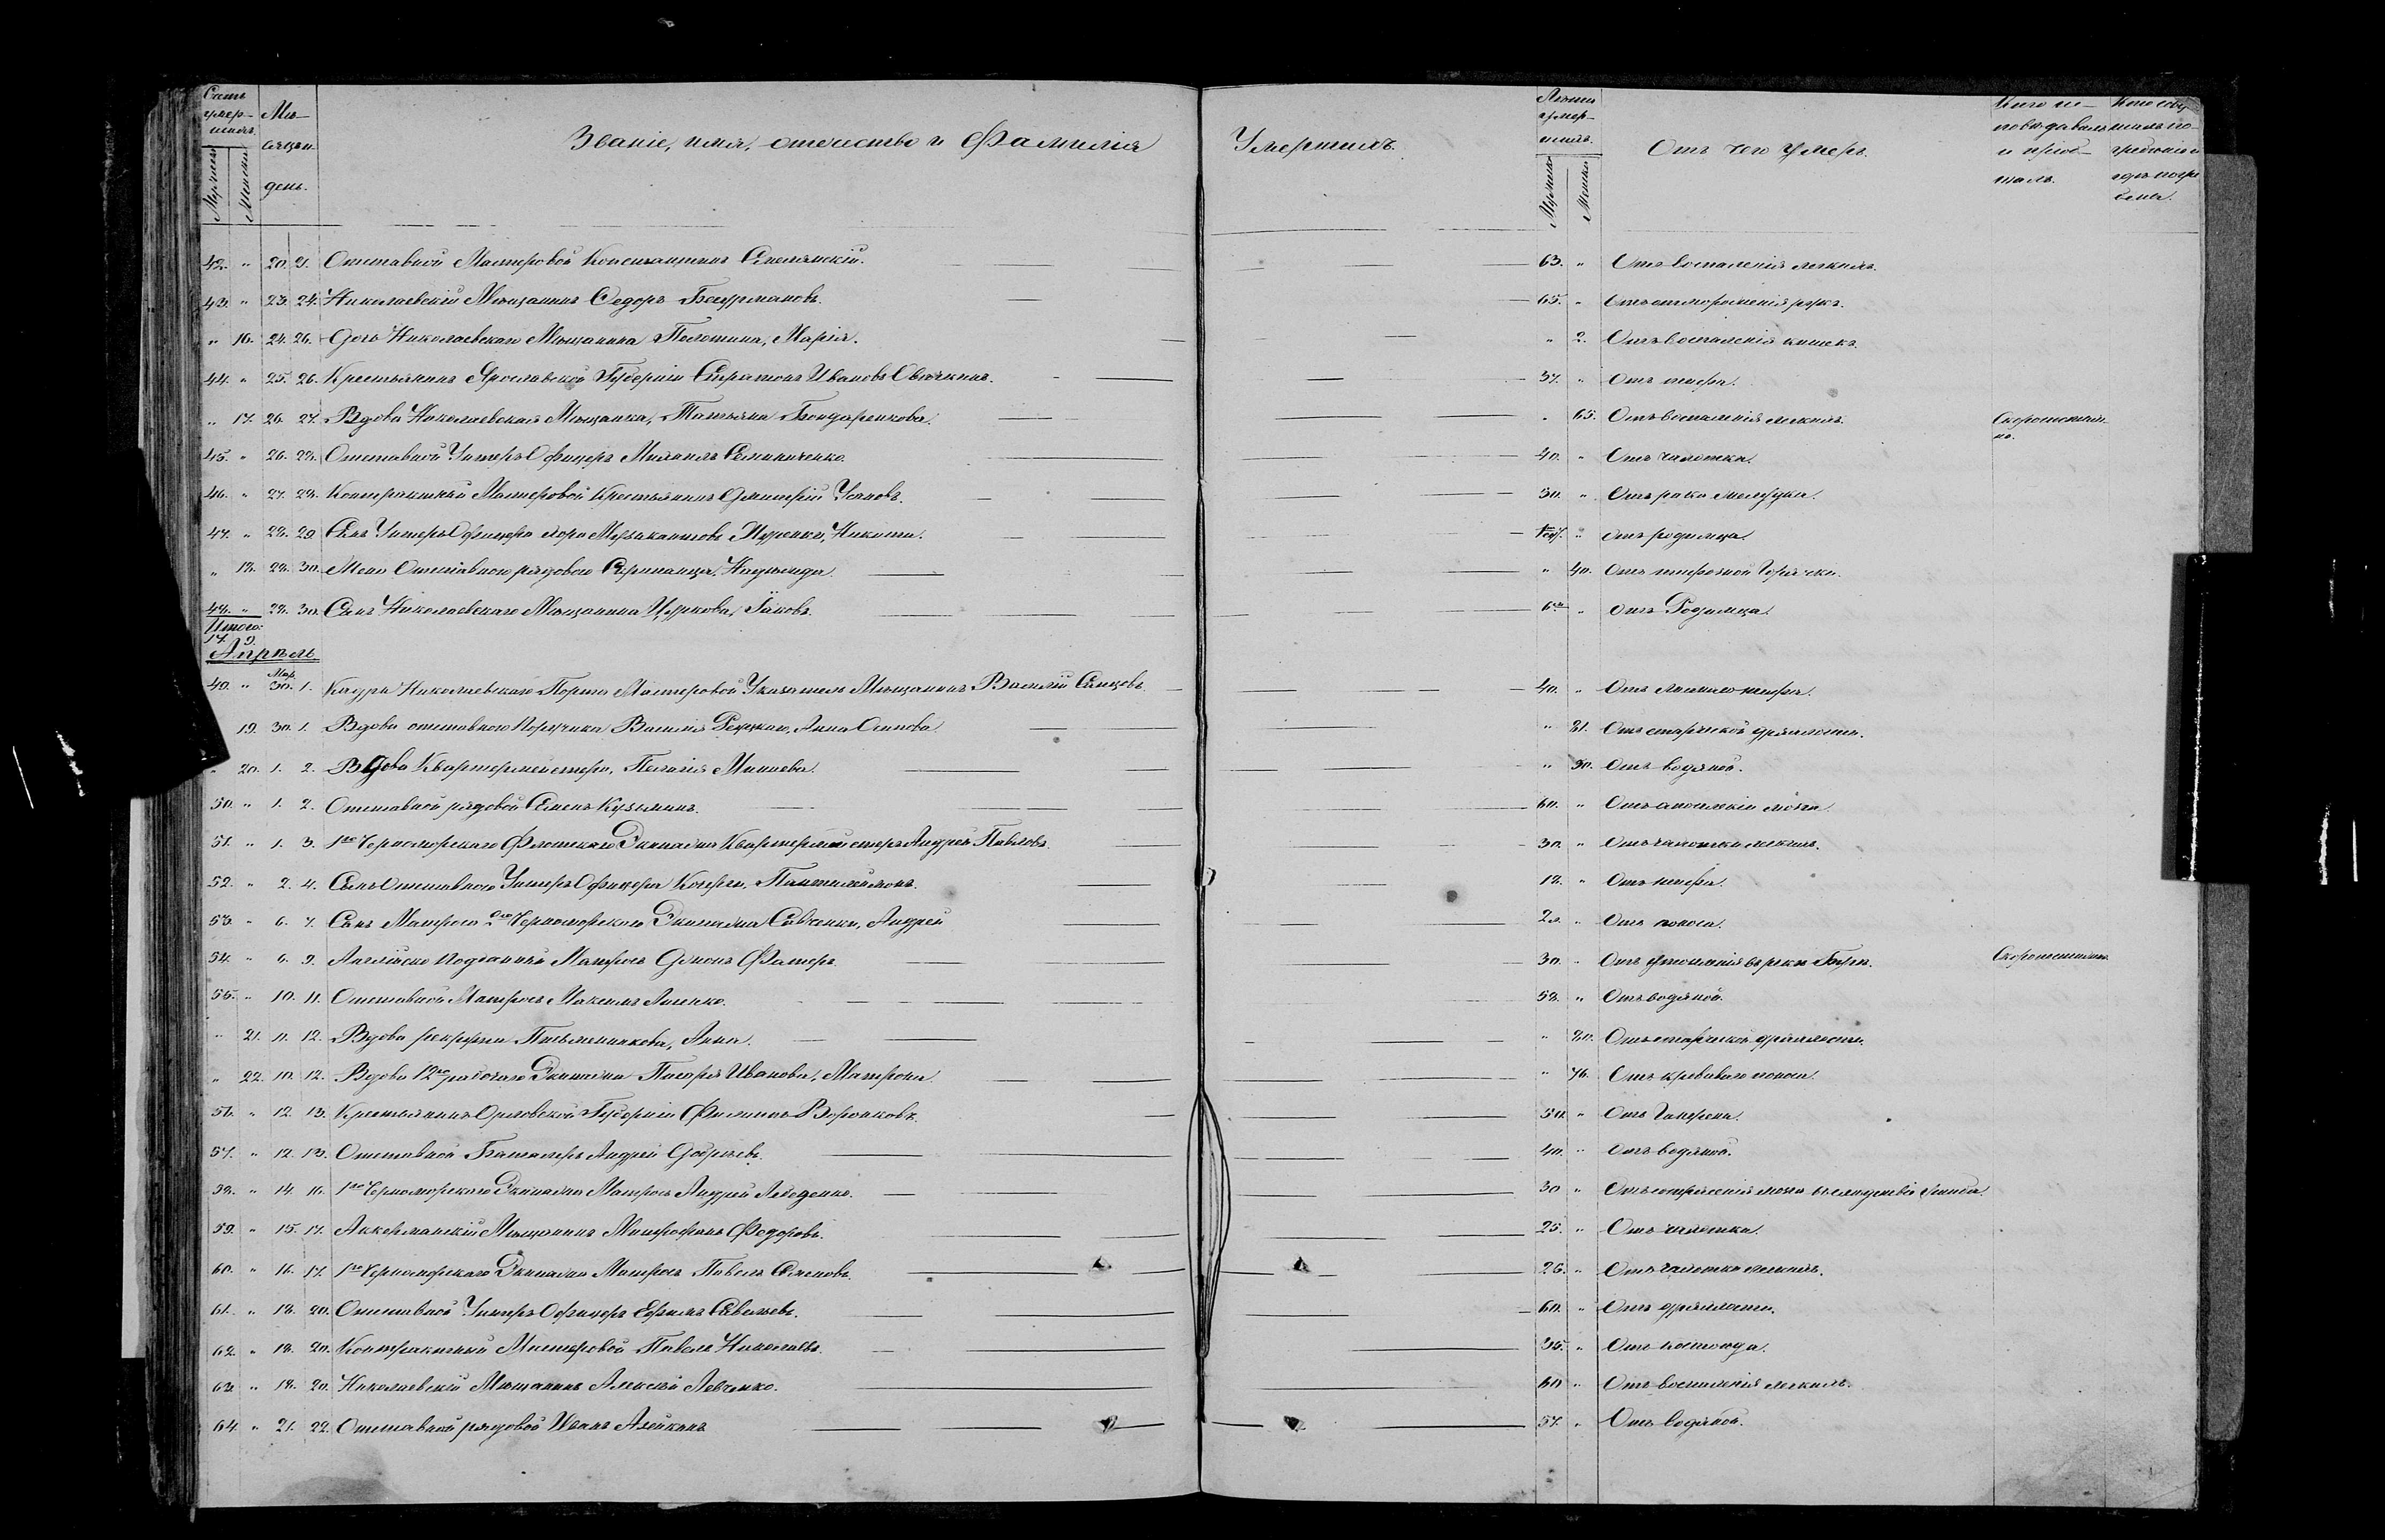 Счетъ умершихъ. Мѣсяцъ и день. Званіе, имя, отечество и Фамилія Умершихъ. Лѣта умершихъ. Отъ чего умеръ. Кто исповѣдывалъ и пріобщалъ. Кто совершалъ погребеніе и гдѣ погребены.
Мужчинъ Женщинъ Мужчинъ Женщинъ
42. " 20. 21. Отставной Мастеровой Константинъ 63. " Отъ воспаленія легкихъ.
43. " 23. 24. Николаевскій Мѣщанинъ Ѳедоръ Башурмановъ. 65. " Отъ отмороженія рукъ.
" 16. 24. 26. Дочь Николаевскаго Мѣщанина Полотина, Марія. " 2. Отъ воспаленія кишекъ.
44. " 25. 26. Крестьянинъ Ярославской Губерніи Ивановъ Овечкинъ. 37. " Отъ тифа.
" 17. 26. 27. Вдова Николаевская Мѣщанка, Татьяна Бондаренкова. " 65. Отъ воспаленія легкихъ. Скоропостижно.
45. " 26. 28. Отставной Унтеръ Офицеръ Михаилъ Семениченко. 40. " Отъ чахотки.
46. " 27. 28. Контрактный Мастеровой Крестьянинъ Дмитрій Усановъ. 50. " Отъ рака желудка.
47. " 28. 29. Сынъ Унтеръ Офицера хора Музыкантовъ Никита. 1 год. " отъ родимца.
" 18. 28. 30. Жена Отставнаго рядоваго Надежда. " 40. Отъ тифозной Горячки.
48. " 28. 30. Сынъ Николаевскаго Мѣщанина Цуркова, Іаковъ. 6 " отъ Родимца.
Итого:
17. 9.
Апрѣль
49. " Мар. 30. 1. Кадра Николаевскаго Порта Мастеровой Указатель Мѣщанинъ Василій Сѣнцовъ. 40. " Отъ тифа.
19. 30. 1. Вдова отставнаго Поручика Василія Анна Осипова. " 81. Отъ старческой дряхлости.
" 20. 1. 2. Вдова Квартермейстера, Пелагія Минаева. " 50. Отъ водяной.
50. " 1. 2. Отставной рядовой Семенъ Кузьминъ. 60. " Отъ апоплексіи мозга.
51. " 1. 3. 1го Черноморскаго Флотскаго Экипажа Квартермейстеръ Андрей Павловъ. 30. " Отъ чахотки легкихъ.
52. " 2. 4. Сынъ Отставнаго Унтеръ Офицера Кочерги, Пантелеймонъ. 18. " Отъ тифа.
53. " 6. 7. Сынъ Матроса 2го Черноморскаго Экипажа Савченки, Андрей 2 л. " Отъ поноса.
54. " 6. 9. Англійско подданный Матросъ Джонъ Фатеръ. 30. " Отъ утопленія въ рѣкѣ Бугѣ. Скоропостижно.
55. " 10. 11. Отставной Матросъ Максимъ Ященко. 58. " Отъ водяной.
" 21. 11. 12. Вдова рекрута Письменникова, Анна. " 80. Отъ старческой дряхлости.
" 22. 10. 12. Вдова 12го рабочаго Экипажа Иванова, Матрона. " 76. Отъ кроваваго поноса.
56. " 12. 13. Крестьянинъ Орловской Губерніи Филиппъ Воронковъ. 50. " Отъ Гангрены.
57. " 12. 13. Отставной Баталеръ Андрей 40. " Отъ водяной.
58. " 14. 16. 1го Черноморскаго Экипажа Матросъ Андрей Лебеденко. 30 " Отъ сотрясенія мозга вслѣдствіе ушиба.
59. " 15. 17. Аккерманскій Мѣщанинъ Митрофанъ Федоровъ. 25. " Отъ чахотки.
60. " 16. 17. 1го Черноморскаго Экипажа Матросъ Павелъ Семеновъ. 26. " Отъ чахотки легкихъ.
61. " 18. 20. Отставной Унтеръ Офицеръ Ефимъ Савельевъ. 60. " Отъ дряхлости.
62. " 18. 20. Контрактный Мастеровой Павелъ Николаевъ. 35. " Отъ костоеда.
63. " 18. 20. Николаевскій Мѣщанинъ Алексѣй Левченко. 60 " Отъ воспаленія легкихъ.
64. " 21. 22. Отставной рядовой Иванъ Алейкинъ 57. " Отъ водяной.